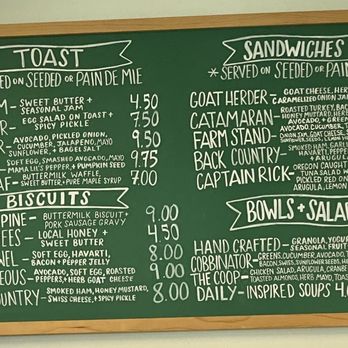 TOAST
ED ON SEEDED OR PAIN DE MIE
SWEET BUTTER +
SEASONAL JAM
4.50
EGG SALAD ON TOAST +
SPICY PICKLE
7.50
AVOCADO, PICKLED ONION,
CUCUMBER, JALAPENO, MAYO
SUNFLOWER, + BAGEL SALT
9.50
SOFT EGG, SMASHED AVOCADO, MAYO
MAMA LIL'S PEPPER + PUMPKIN SEED
9.75
BUTTERMILK WAFFLE,
SWEET BUTTER + PURE MAPLE SYRUP
7.00
BISCUITS
PINE - BUTTERMILK BISCUIT +
PORK SAUSAGE GRAVY
9.00
EES - LOCAL HONEY +
SWEET BUTTER
4.50
EL - SOFT EGG, HAVARTI,
BACON + PEPPER JELLY
8.00
EOUS - AVOCADO, SOFT EGG, ROASTED
PEPPERS, + HERB GOAT CHEESE
9.00
OUNTRY - SMOKED HAM, HONEY MUSTARD,
SWISS CHEESE, + SPICY PICKLE
8.00
SANDWICHES
* SERVED ON SEEDED OR PAIN
GOAT HERDER - GOAT CHEESE, HER
CARAMELIZED ONION JAM
CATAMARAN - ROASTED TURKEY, BAC
HONEY MUSTARD, HERB
AVOCADO, + GREEN
FARM STAND - AVOCADO, CUCUMBER,
ONION, DILL GOAT CHEESE, SE
SUNFLOWER, LEMON
BACK COUNTRY - SMOKED HAM, GARLIC
HAVARTI, PEPPER
ARUGULA + ONION
CAPTAIN RICK - OREGON CAUGHT
TUNA SALAD W
PICKLED RED ON
ARUGULA, LEMON
BOWLS + SALA
HAND CRAFTED - GRANOLA, YOGU
SEASONAL FRUIT
COBBINATOR - GREENS, CUCUMBER, AVOCADO, T
BACON, SWISS, SUNFLOWER SEEDS,
THE COOP - CHICKEN SALAD, ARUGULA, CRANBE
TOASTED ALMONDS, HERB MAYO, TOAST
DAILY - INSPIRED SOUPS 4.